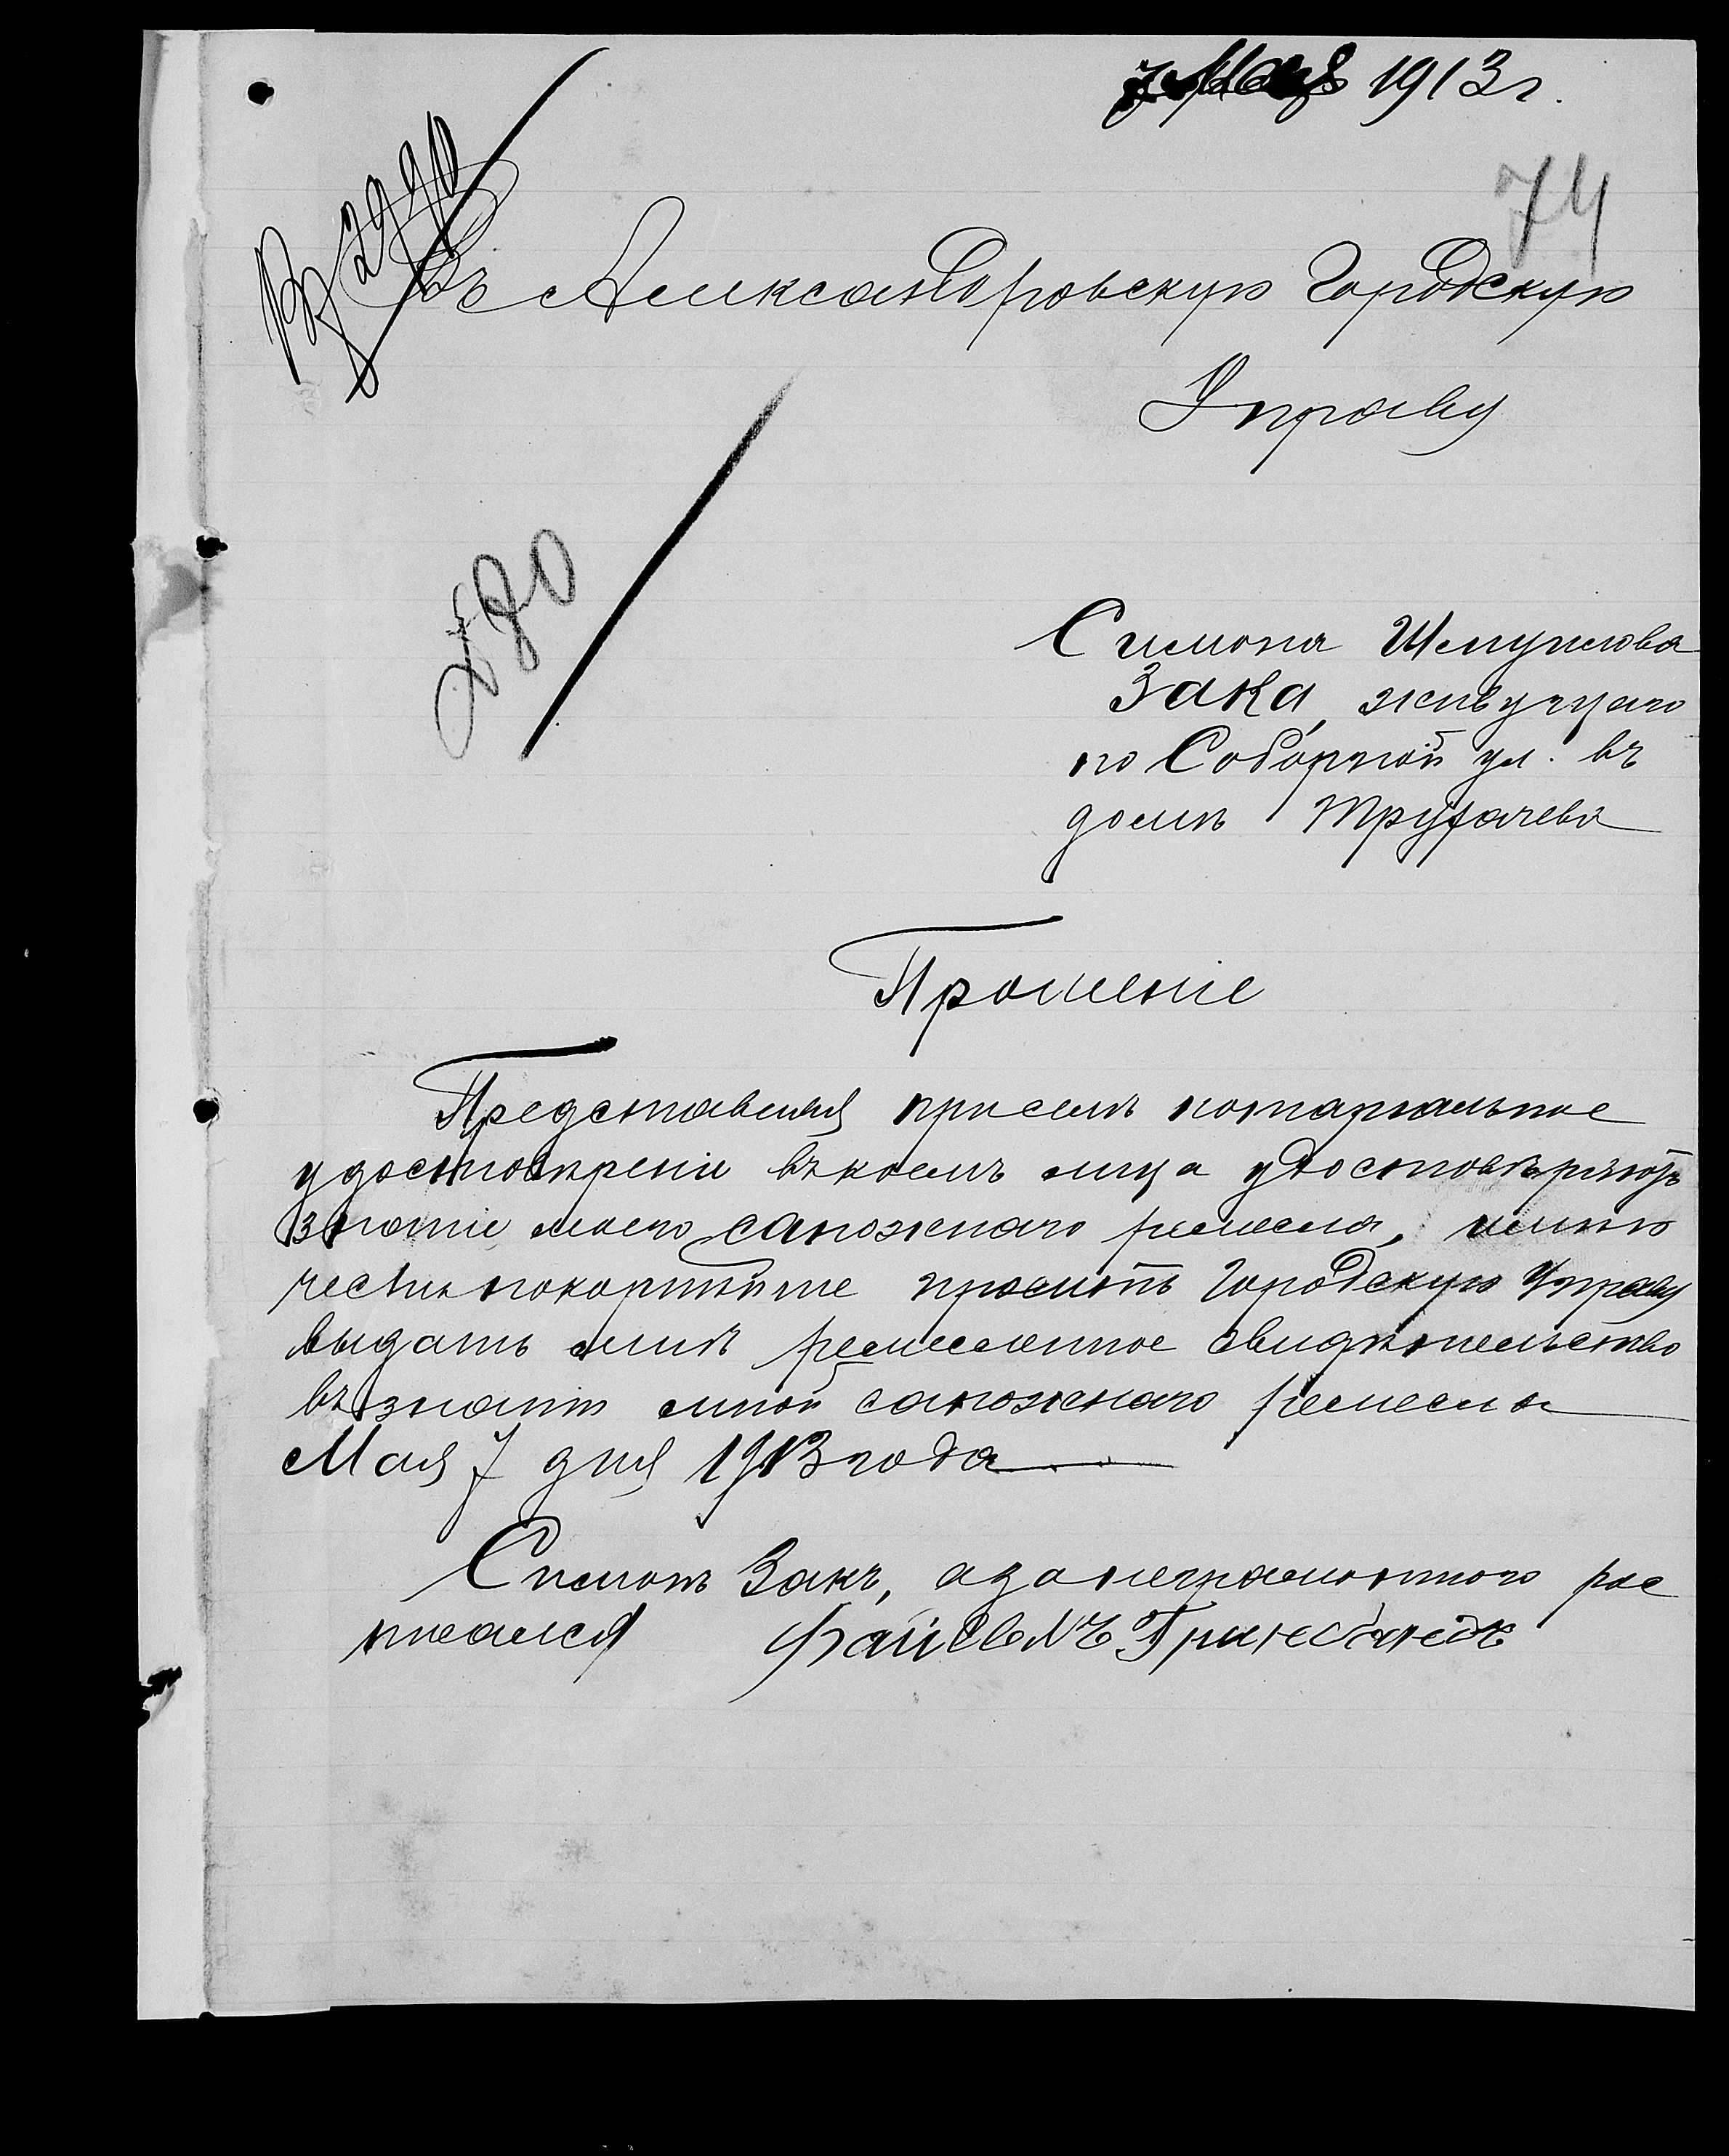 7 Мая 1913 г.
74
Въ Александровскую Городскую
Управу
Симона Шмуилова
Зака, живущаго
по Соборной ул. въ
доме Трубачева
Прошеніе
Представляя при семъ нотаріальное
удостовѣреніе въ коемъ лица удостовѣряютъ
знатіе моего сапожнаго ремесла, имѣю
честь покорнѣйше просить Городскую Управу
выдать мнѣ ремесленное свидѣтельство
въ знатіи мной сапожнаго ремесла
Мая 7 дня 1913 года
Симонъ Закъ, а за неграмотного рос
писался Файвель